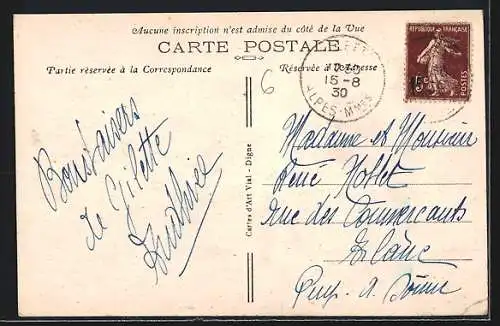 Aucune inscription n'est admise du côté de la Vue
CARTE POSTALE
Partie réservée à la Correspondance
Réservée à l'Adresse
6
15-8
30
ALPES-MMES
REPUBLIQUE FRANÇAISE
5c
POSTES
Bons baisers
de Gilette
Cartes d'Art Vial - Digne
Madame et Monsieur
René Noblet
rue des Commerçants
Puy-d-Dôme